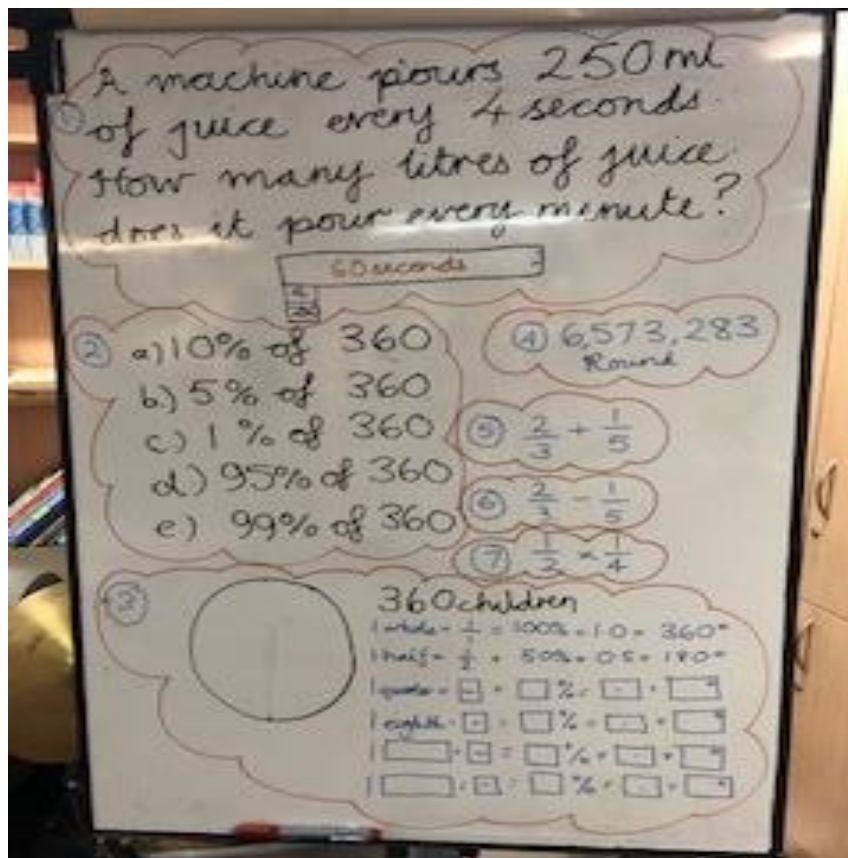 ① A machine pours 250ml
of juice every 4 seconds.
How many litres of juice
does it pour every minute?
60 seconds
② a) 10% of 360
b.) 5% of 360
c.) 1% of 360
d) 95% of 360
e) 99% of 360
④ 6,573,283
Round
⑤ 2/3 + 1/5
⑥ 2/3 - 1/5
⑦ 1/2 × 1/4
③ 360 children
1 whole = 1/1 = 100% = 1.0 = 360°
1 half = 1/2 = 50% = 0.5 = 180°
1 quarter = % = = °
1 eighth = % = = °
1 = = % = = °
1 = = % = = °